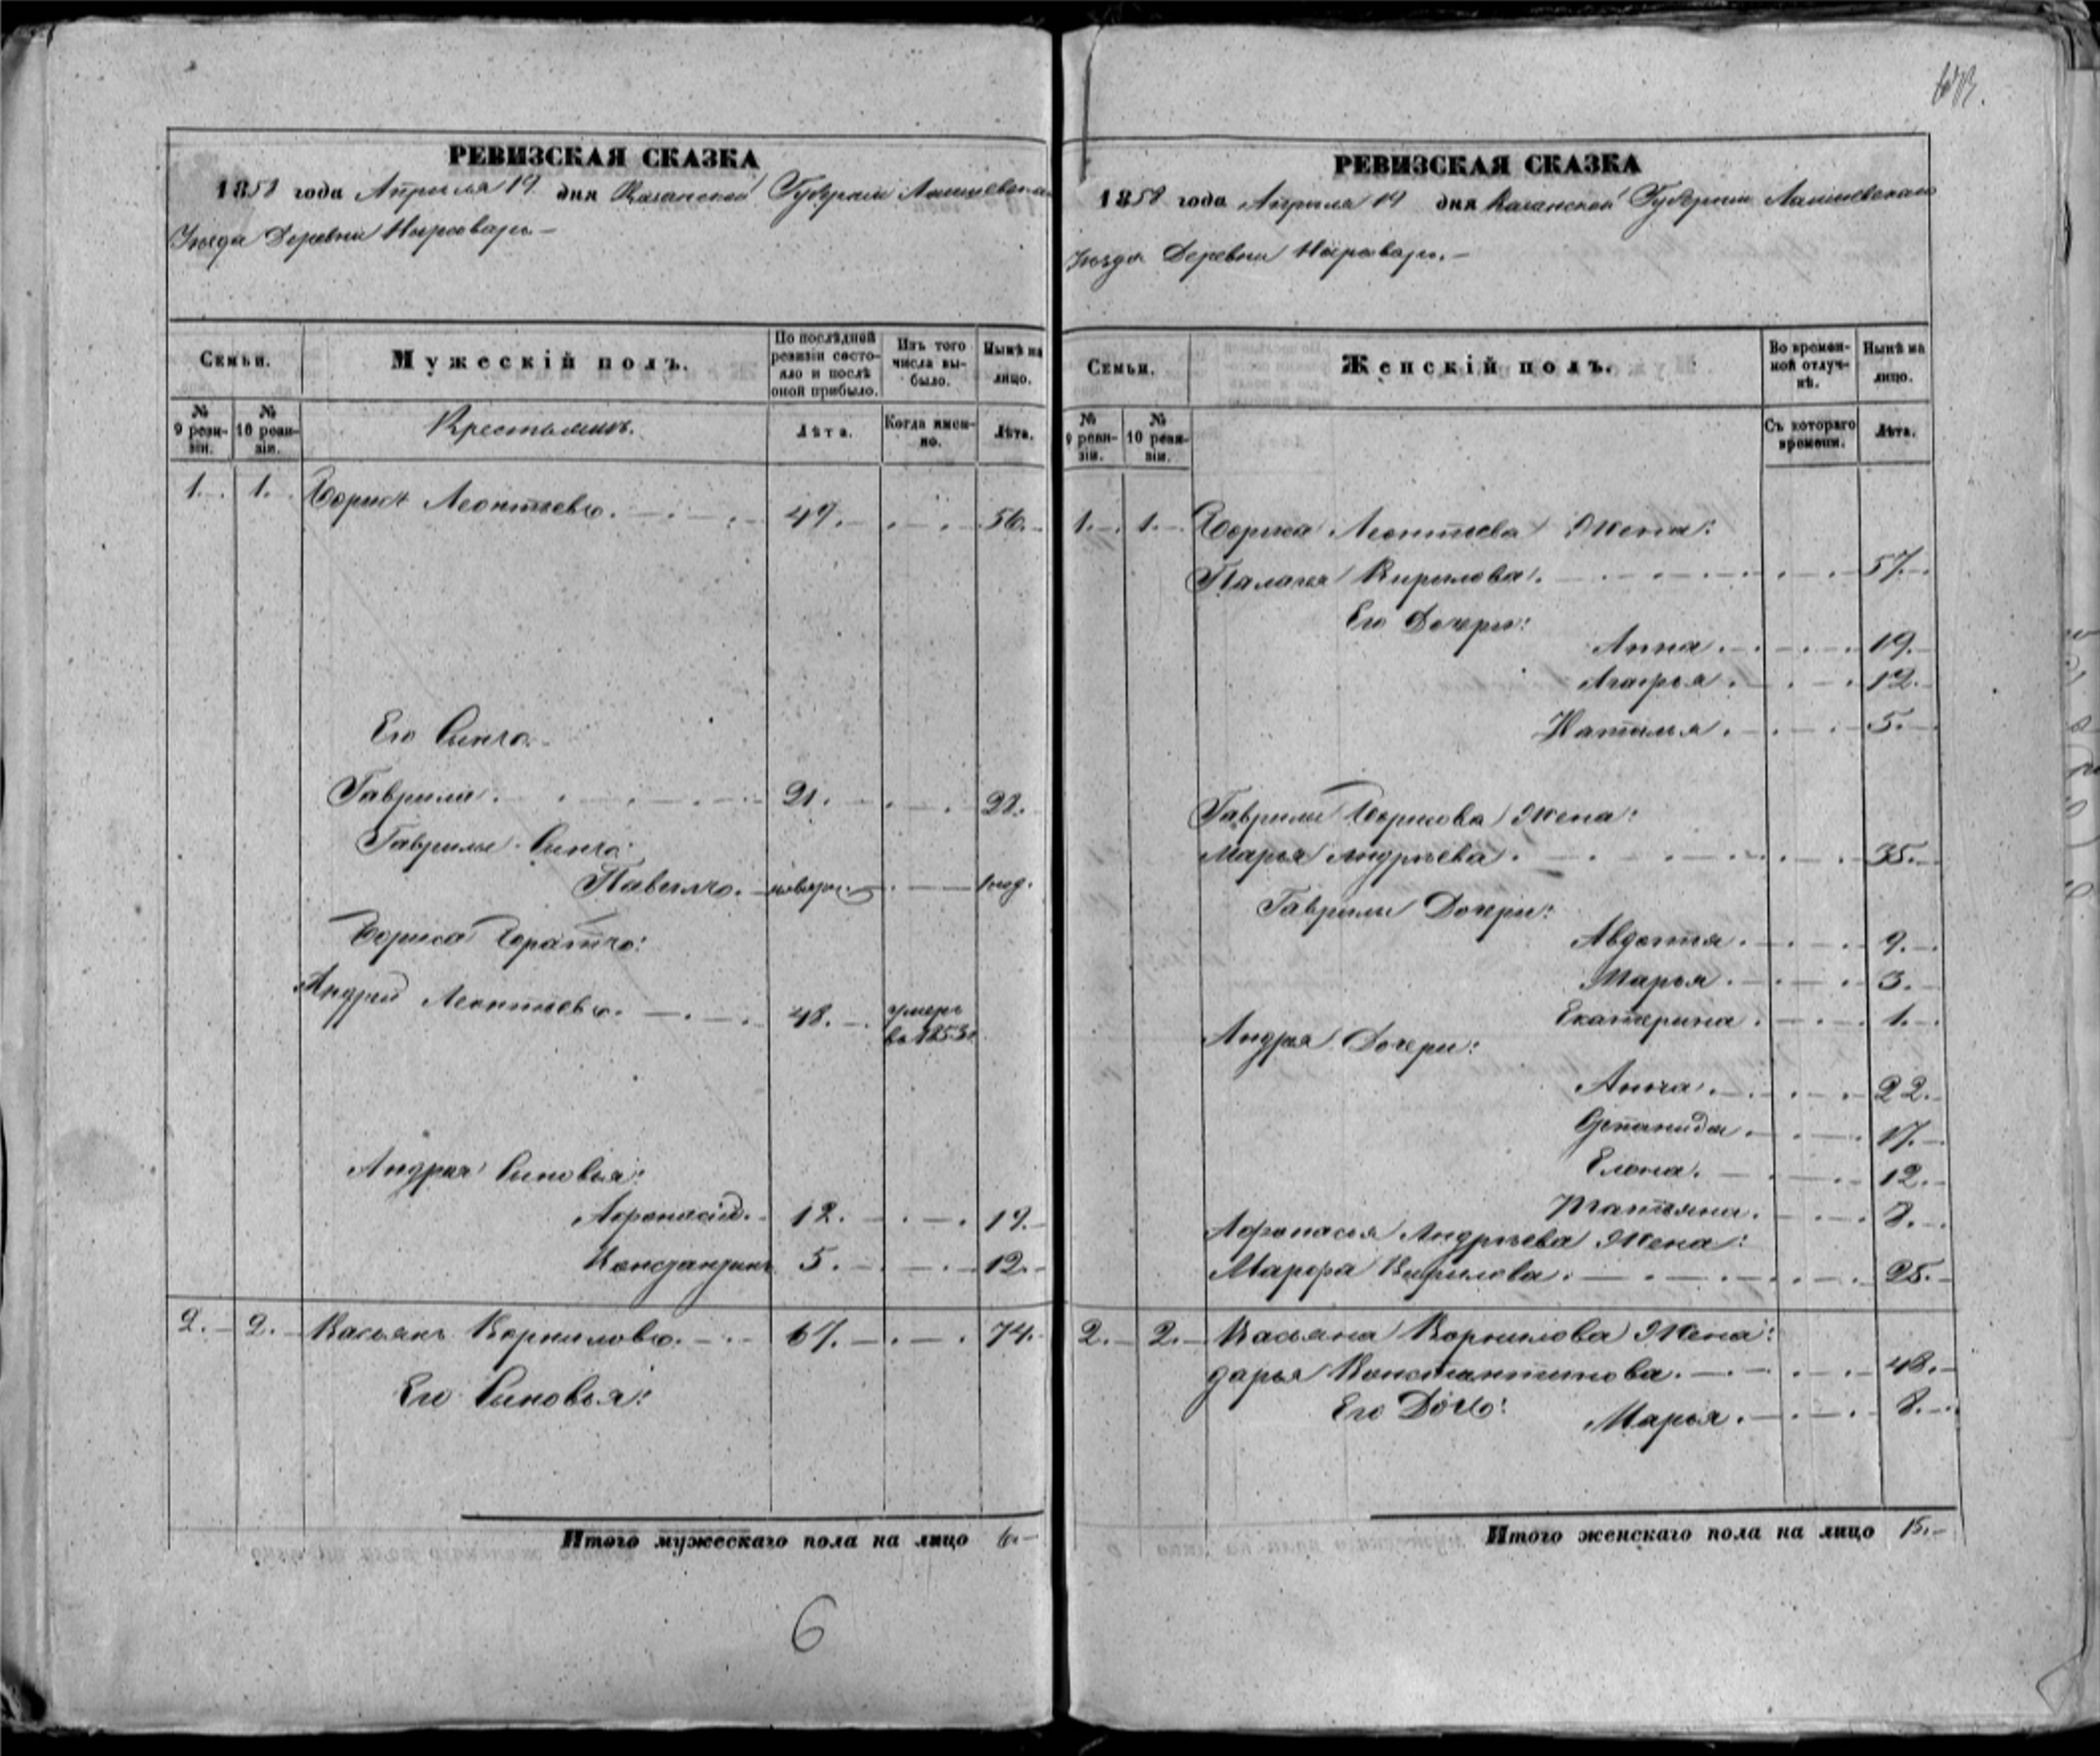 РЕВИЗСКАЯ СКАЗКА
1858 года Апреля 19 дня Казанской Губернiи Лаишевскаго
Уезда Деревни Нырсовары
Семьи.
Мужескiй полъ.
По послѣдней ревизiи состояло и послѣ оной прибыло.
Изъ того числа выбыло.
Нынѣ на лицо.
№ 9 ревизiи.
№ 10 ревизiи.
Крестьянинъ.
Лѣта.
Когда именно.
Лѣта.
1. 1. Борисъ Леонтьевъ. 49. 56.
Его Сынъ.
Гаврила. 21. 28.
Гаврилы Сынъ:
Павилъ. новорж. 1 год.
Бориса Братъ:
Андрей Леонтьевъ. 48. умеръ въ 1853.
Андрея Сыновья:
Афонасiй. 12. 19.
Констянтинъ 5. 12.
2. 2. Касьянъ Корниловъ. 67. 74.
Его Сыновья:
Итого мужескаго пола на лицо 6.
6
РЕВИЗСКАЯ СКАЗКА
1858 года Апреля 19 дня Казанской Губернiи Лаишевскаго
Уезда Деревни Нырсовары.
Семьи.
Женскiй полъ.
Во временной отлучкѣ.
Нынѣ на лицо.
№ 9 ревизiи.
№ 10 ревизiи.
Съ котораго времени.
Лѣта.
1. 1. Бориса Леонтьева Жена:
Палагея Кирилова. 57.
Его Дочери:
Анна. 19.
Агафья. 12.
Наталья. 5.
Гаврилы Борисова Жена:
Марья Андрѣева. 35.
Гаврилы Дочери:
Авдотья. 9.
Марья. 3.
Екатерина. 1.
Андрея Дочери:
Анна. 22.
Степанида. 17.
Елена. 12.
Татьяна. 8.
Афонасья Андрѣева Жена:
Марфа Кирилова. 25.
2. 2. Касьяна Корнилова Жена:
дарья Константинова. 48.
Его Дочь: Марья. 8.
Итого женскаго пола на лицо 15.